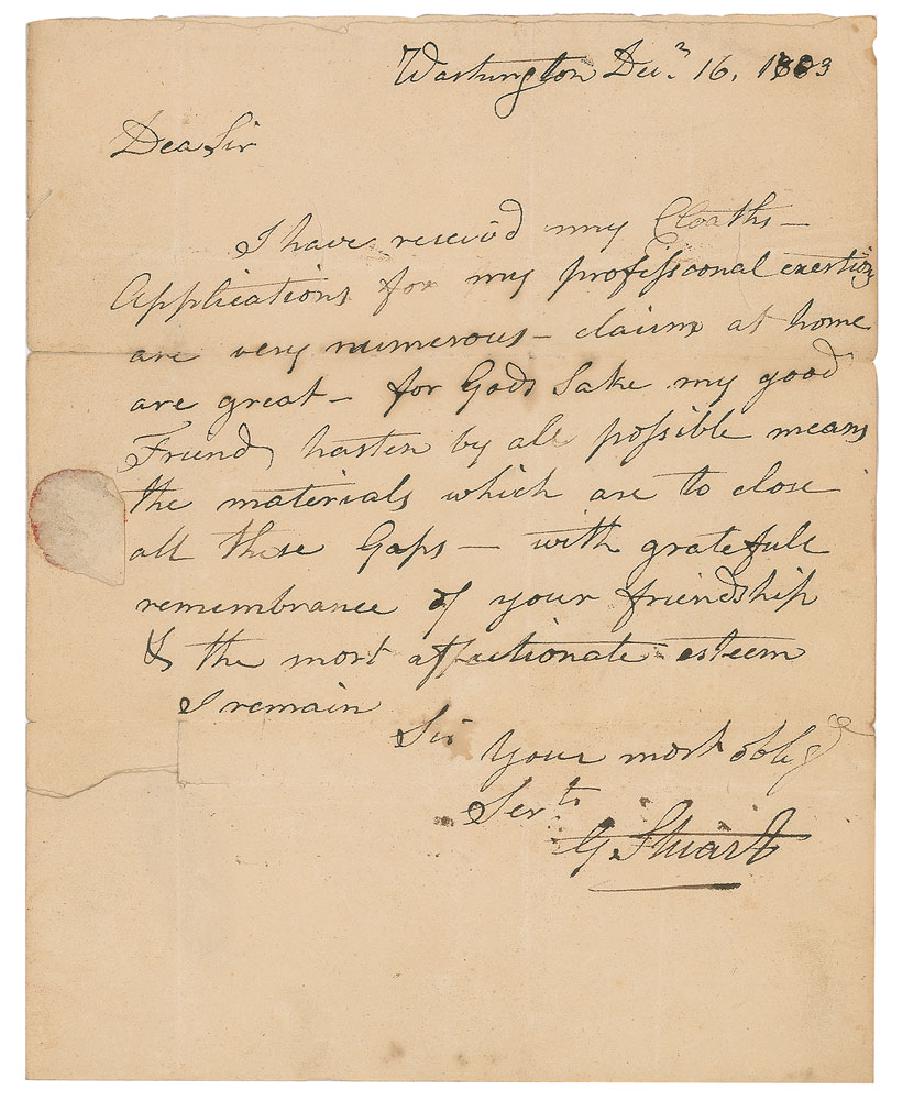 Washington Dec.r 16, 1803
Dear Sir
I have reseiv'd my Cloaths —
Applications for my professional exertions
are very numerous — claims at home
are great — for Gods Sake my good
Friend hasten by all possible means
the materials which are to close
all these Gaps — with gratefull
remembrance of your friendship
& the most affectionate esteem
I remain
Sir Your most oblig'd
Servt
G. Stuart